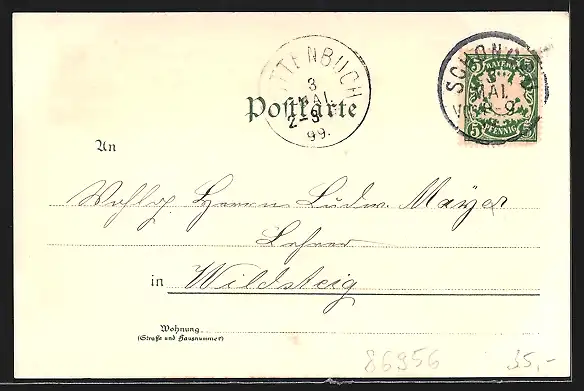 SCHONG
3
MAI.
BAYERN
5 5
5 5
PFENNIG
TTENBUCH
3
MAI
2-3
99.
Postkarte
An
Wohlg. Herrn Ludw. Mayer
Lehrer
in Wildsteig
Wohnung
(Straße und Hausnummer)
86956 35,-